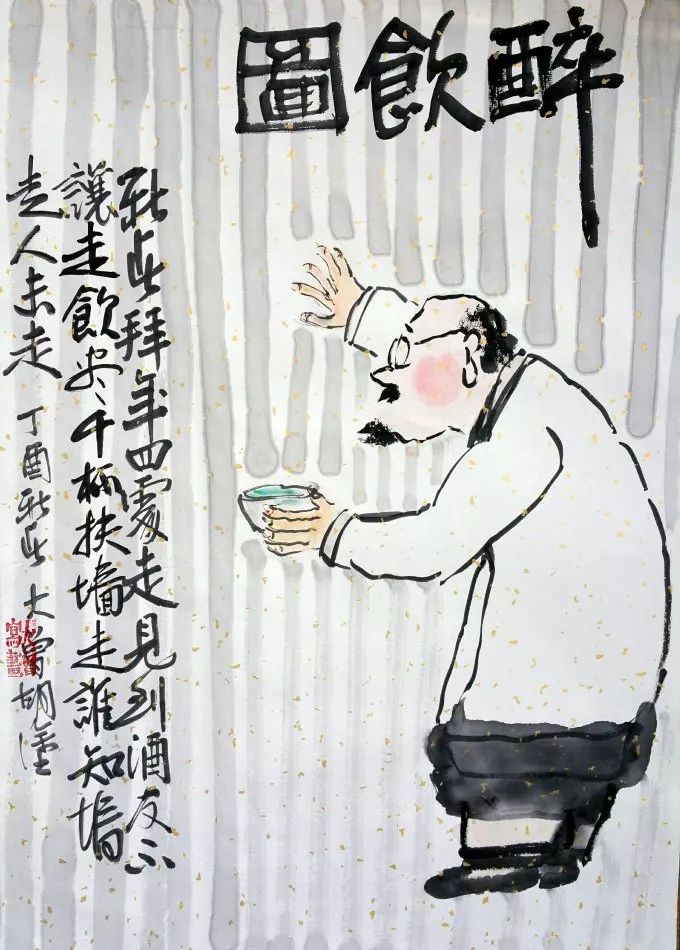 醉飲圖
新歲拜年四處走見到酒友不
讓走飲尽千杯扶墻走誰知墻
走人未走 丁酉新歲 大曾胡塗